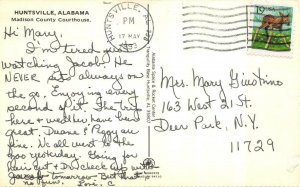 HUNTSVILLE, ALABAMA
Madison County Courthouse.
Hi Mary,
I'm tired just
watching Jacob. He
NEVER sits, always on
the go. Enjoying every
second of it. The trip
here & weather have been
great. Duane & Peggy are
fine. We all went to the
zoo yesterday. Going for
haircut & Dr. check
tomorrow. But that
no fun. Love, C
HUNTSVILLE, AL 358
PM
17 MAY
19 USA
Mrs. Mary Giustino
163 West 21 St.
Deer Park, N.Y.
11729